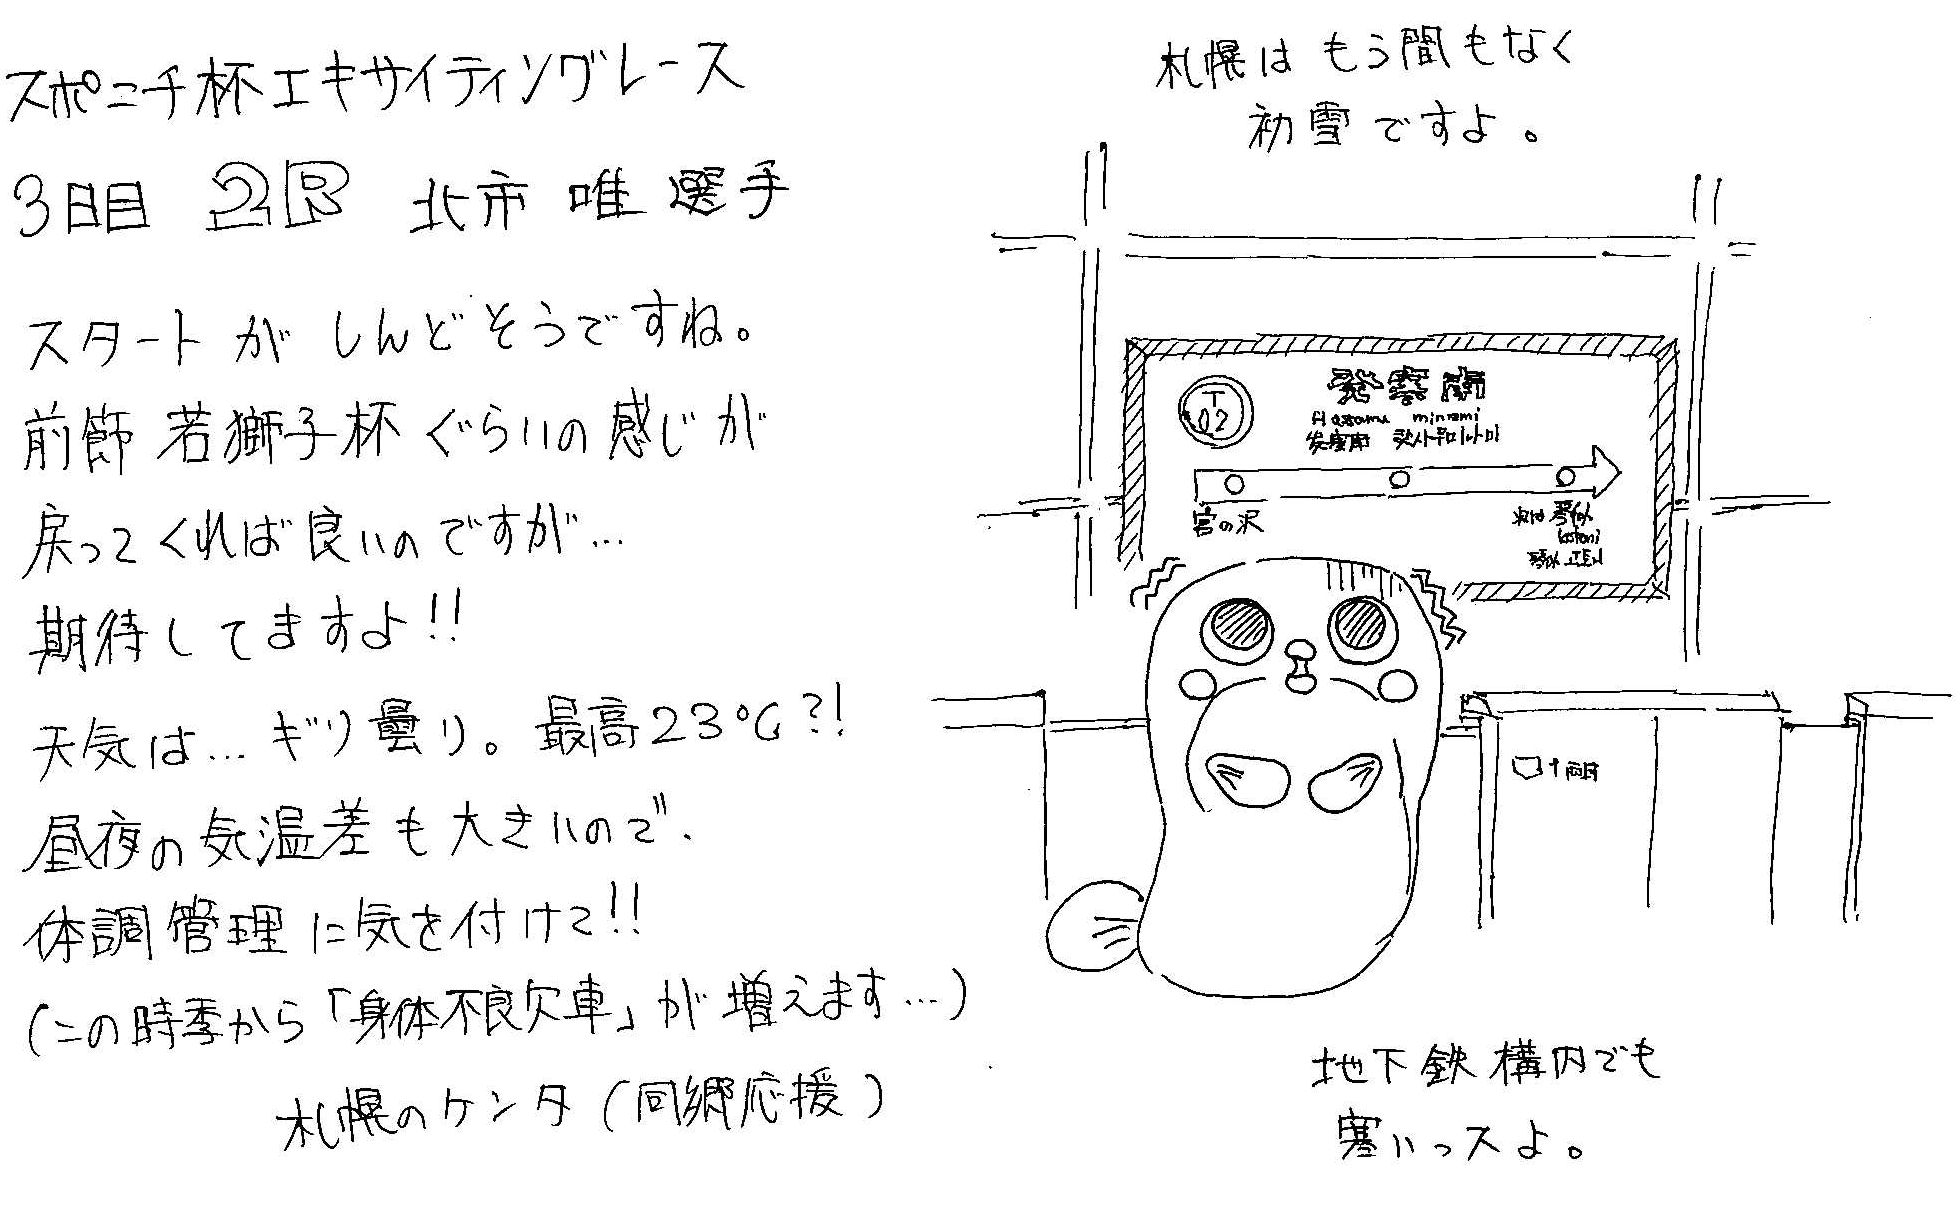 スポニチ杯エキサイティングレース
3日目 2R 北市 唯 選手
スタートがしんどそうですね。
前節 若獅子杯ぐらいの感じが
戻ってくれば良いのですが…
期待してますよ!!
天気は…ギリ曇り。最高23℃?!
昼夜の気温差も大きいので、
体調管理に気を付けて!!
(この時季から「身体不良欠車」が増えます…)
札幌のケンタ(同郷応援)
札幌はもう間もなく
初雪ですよ。
T
02
発寒南
Hassamu minami
发寒南 핫사무미나미
宮の沢
次は 琴似
kotoni
琴似 고토니
地下鉄構内でも
寒いっスよ。